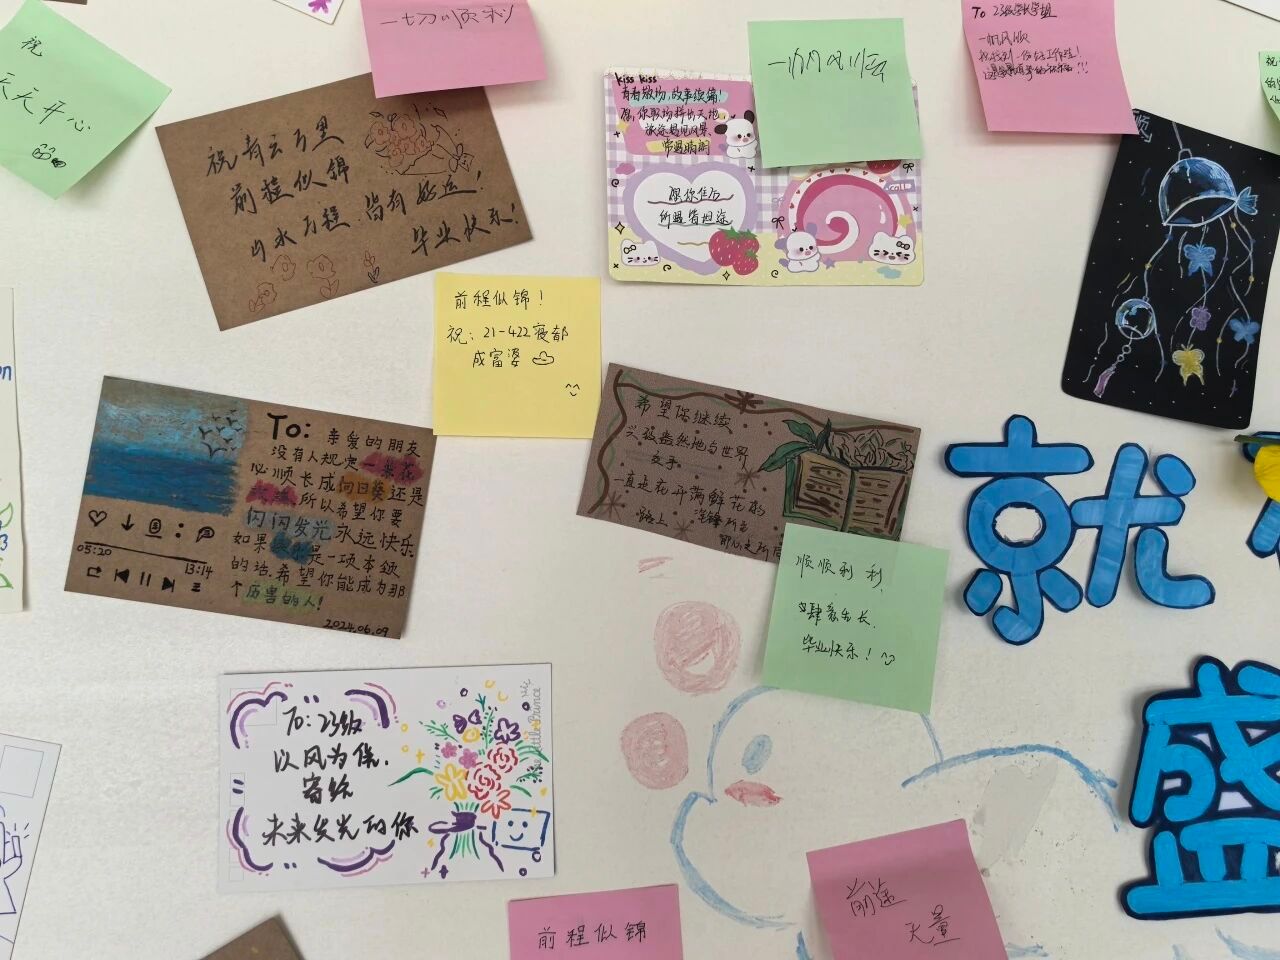 祝
天天开心
一切顺利
祝青云万里
前程似锦
山水万程,皆有好运!
毕业快乐!
kiss kiss
青春散场,故事续篇!
常遇晴朗
愿你往后
所遇皆坦途
一帆风顺
To 23级学长学姐
一帆风顺
祝
前程似锦!
祝:21-422寝都
成富婆
To: 亲爱的朋友
没有人规定一朵花
必须长成向日葵还是
玫瑰 所以希望你要
闪闪发光 永远快乐
如果快乐是一项本领
的话,希望你能成为那
个厉害的人!
05:20
13:14
2024.06.09
希望你继续
兴致盎然地与世界
交手
一直走在开满鲜花的
路上
顺顺利利
毕业快乐!
To:23级
以风为信,
寄给
未来发光的你
The Little Prince
就
盛
前程似锦
前途
无量